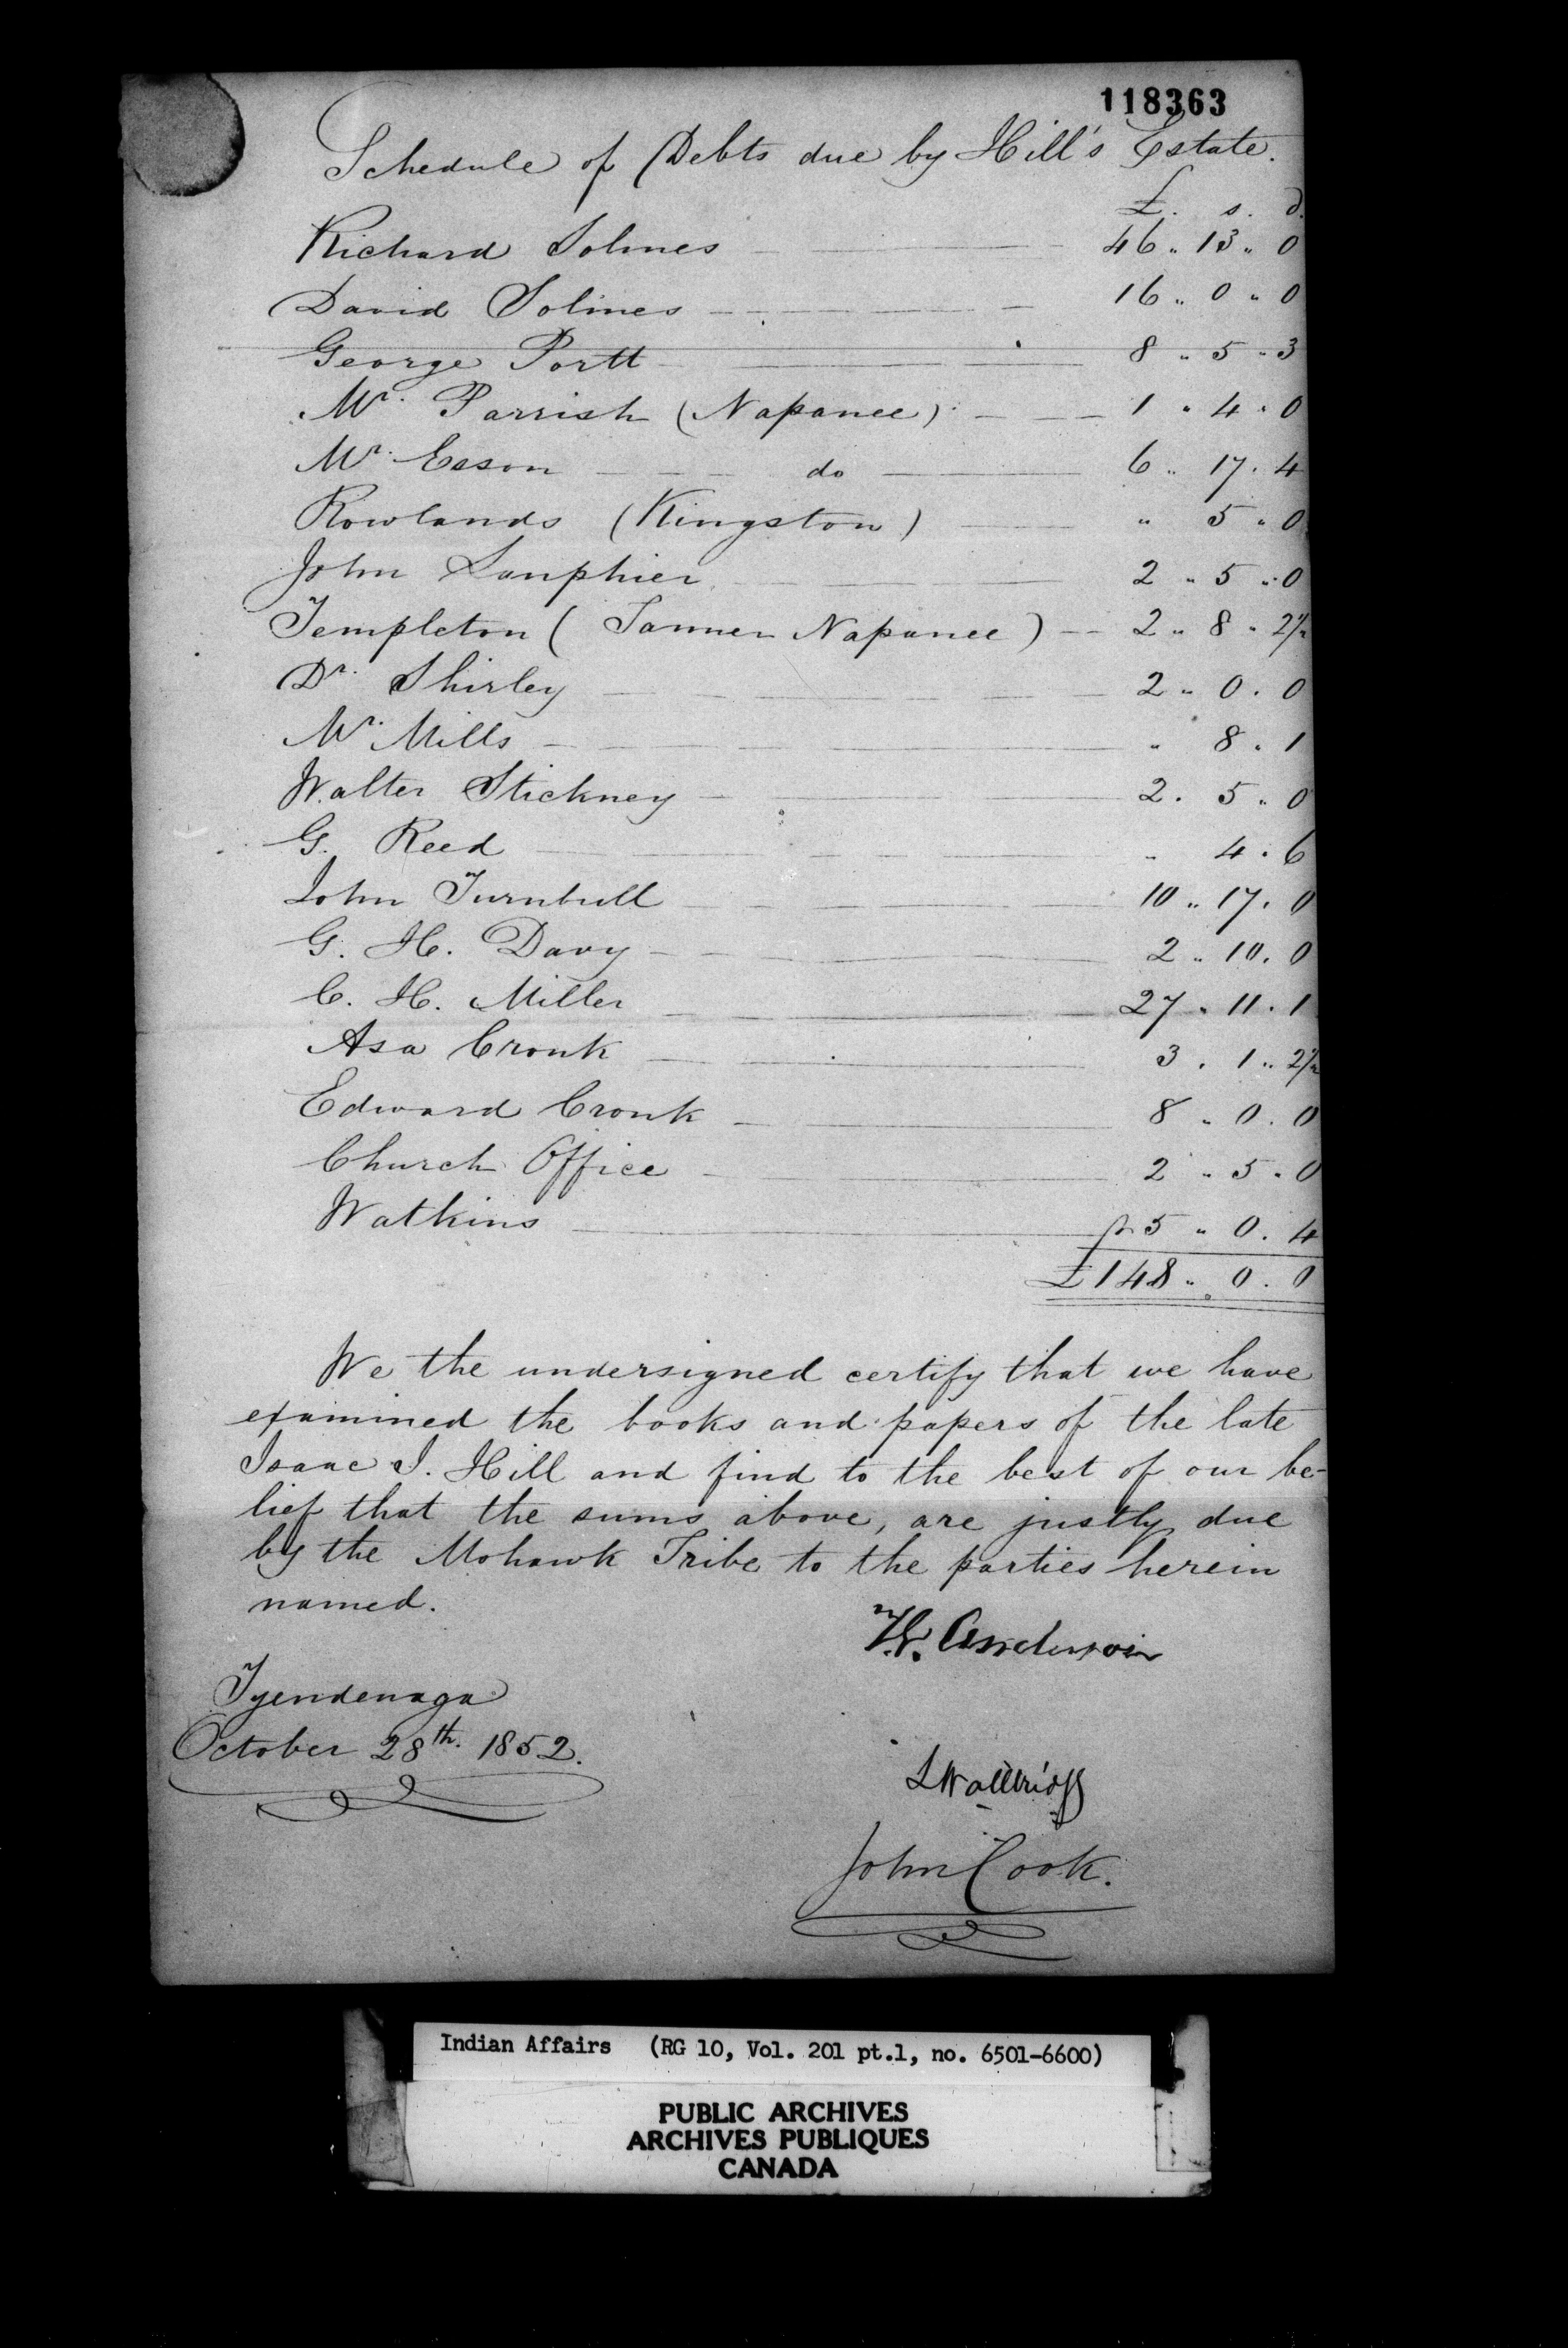 118363
Schedule of Debts due by Hill's Estate.
£. s. d.
Richard Solmes 46 .. 13 .. 0
David Solmes 16 .. 0 .. 0
George Portt 8 .. 5 .. 3
Mr. Parrish (Napanee) 1 .. 4 . 0
Mr. Esson do 6 .. 17 . 4
Rowlands (Kingston) .. 5 .. 0
John Lanphier 2 .. 5 .. 0
Templeton (Tanner Napanee) 2 .. 8 .. 2½
Dr. Shirley 2 .. 0 . 0
Mr. Mills .. 8 .. 1
Walter Stickney 2 . 5 .. 0
G. Reed .. 4 . 6
John Turnbull 10 .. 17 . 0
G. H. Davy 2 .. 10 . 0
C. H. Miller 27 .. 11 . 1
Asa Cronk 3 . 1 .. 2½
Edward Cronk 8 .. 0 . 0
Church Office 2 .. 5 . 0
Watkins 5 .. 0 . 4
£148 .. 0 . 0
We the undersigned certify that we have
examined the books and papers of the late
Isaac I. Hill and find to the best of our be-
lief that the sums above, are justly due
by the Mohawk Tribe to the parties herein
named.
Anderson
Tyendenaga
October 28th. 1852.
L Wallbridge
John Cook.
Indian Affairs (RG 10, Vol. 201 pt.1, no. 6501-6600)
PUBLIC ARCHIVES
ARCHIVES PUBLIQUES
CANADA